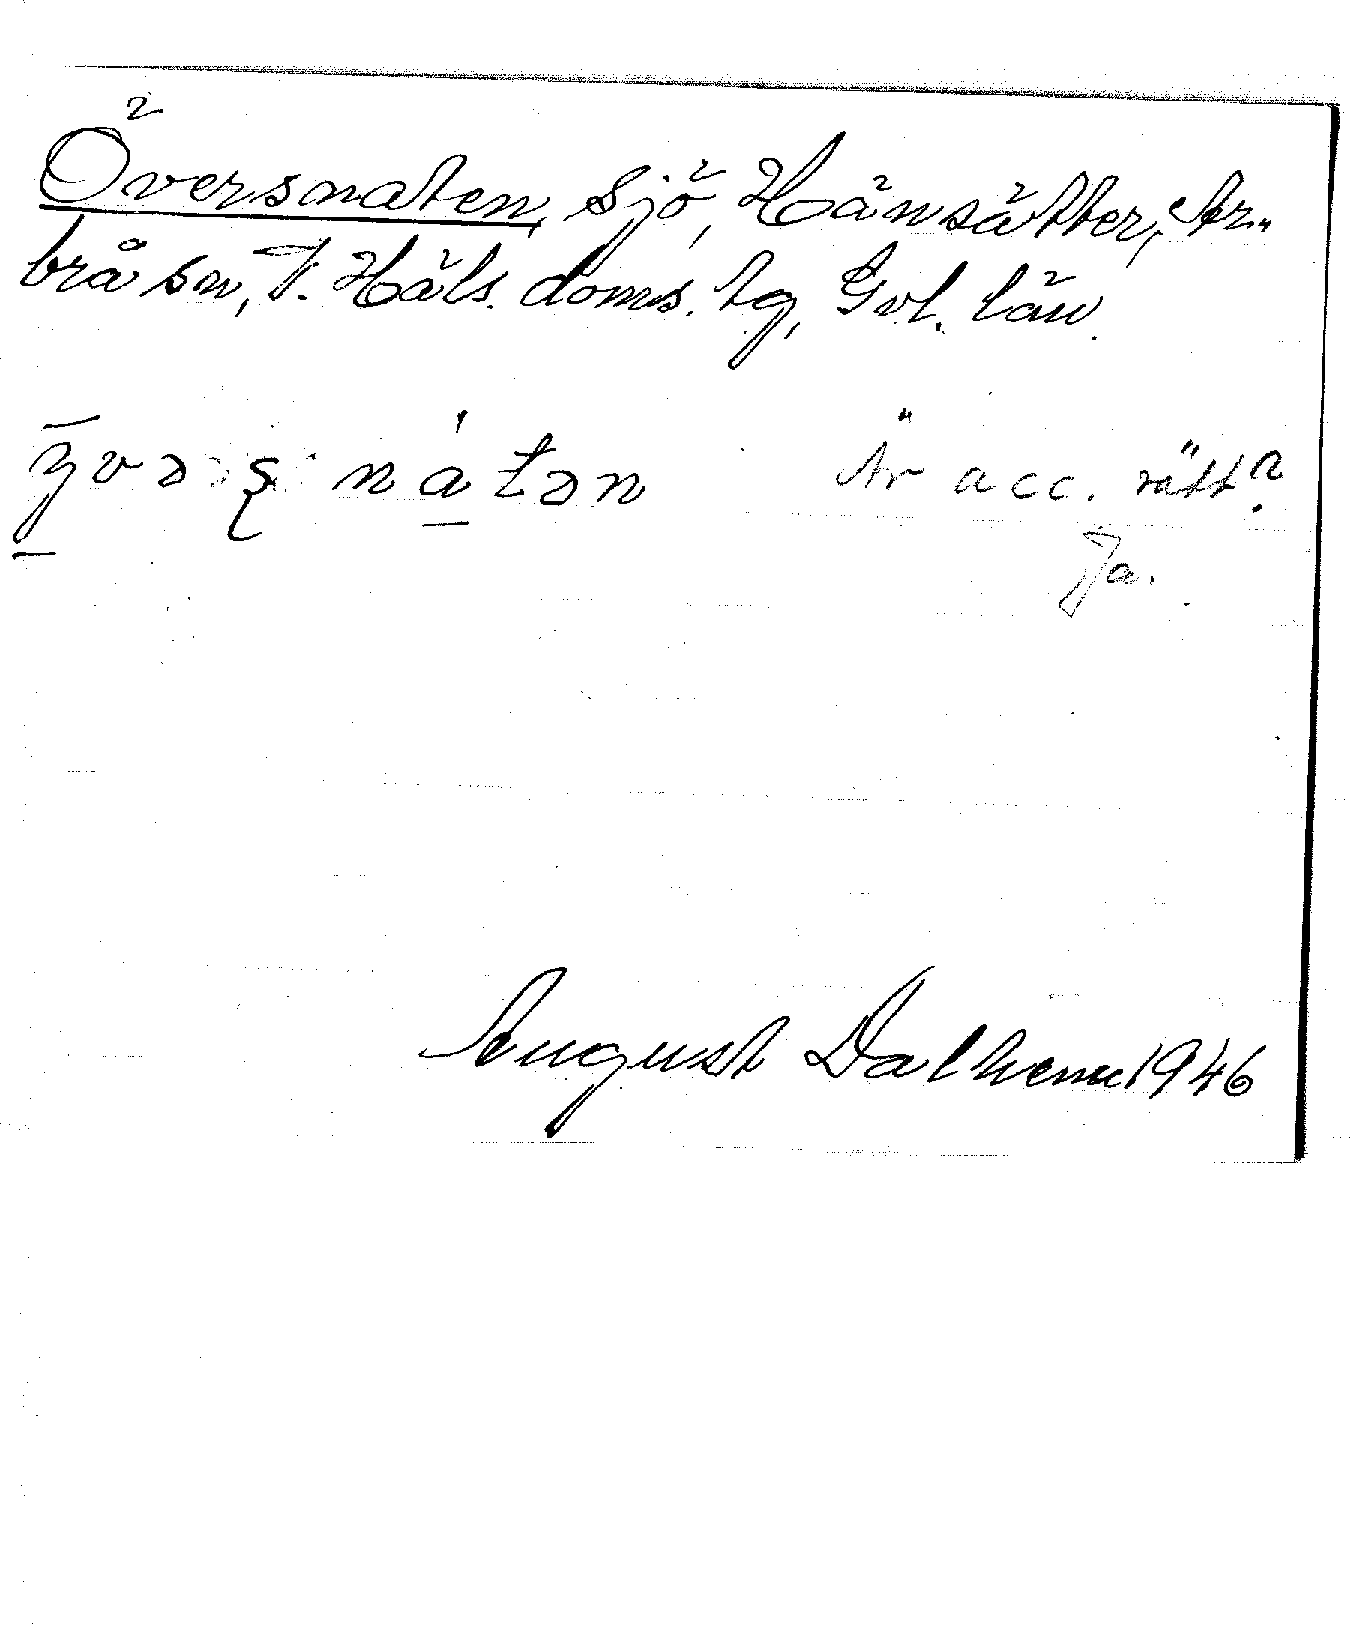 Översnaten, sjö, Hänsätter, Ar-
brå sn, V. Häls. doms. tg, Gvl. län.
ȳvəʂ nátən Är acc. rätt?
Ja.
August Dalhem 1946